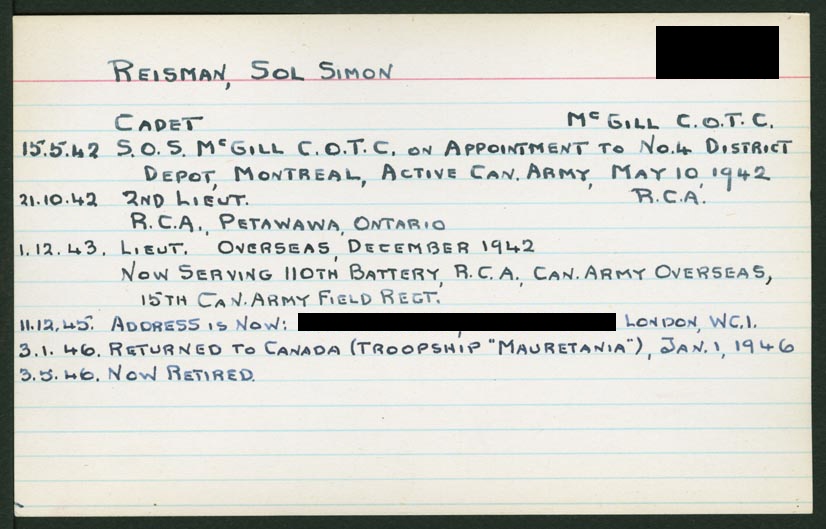 REISMAN, SOL SIMON
CADET McGILL C.O.T.C.
15.5.42 S.O.S. McGILL C.O.T.C. ON APPOINTMENT TO No.4 DISTRICT
DEPOT, MONTREAL, ACTIVE CAN. ARMY, MAY 10, 1942
21.10.42 2ND LIEUT. R.C.A.
R.C.A., PETAWAWA, ONTARIO
1.12.43. LIEUT. OVERSEAS, DECEMBER 1942
NOW SERVING 110TH BATTERY, R.C.A., CAN. ARMY OVERSEAS,
15TH CAN. ARMY FIELD REGT.
11.12.45. ADDRESS IS NOW: LONDON, WC.1.
3.1.46. RETURNED TO CANADA (TROOPSHIP "MAURETANIA"), JAN. 1, 1946
3.5.46. NOW RETIRED.